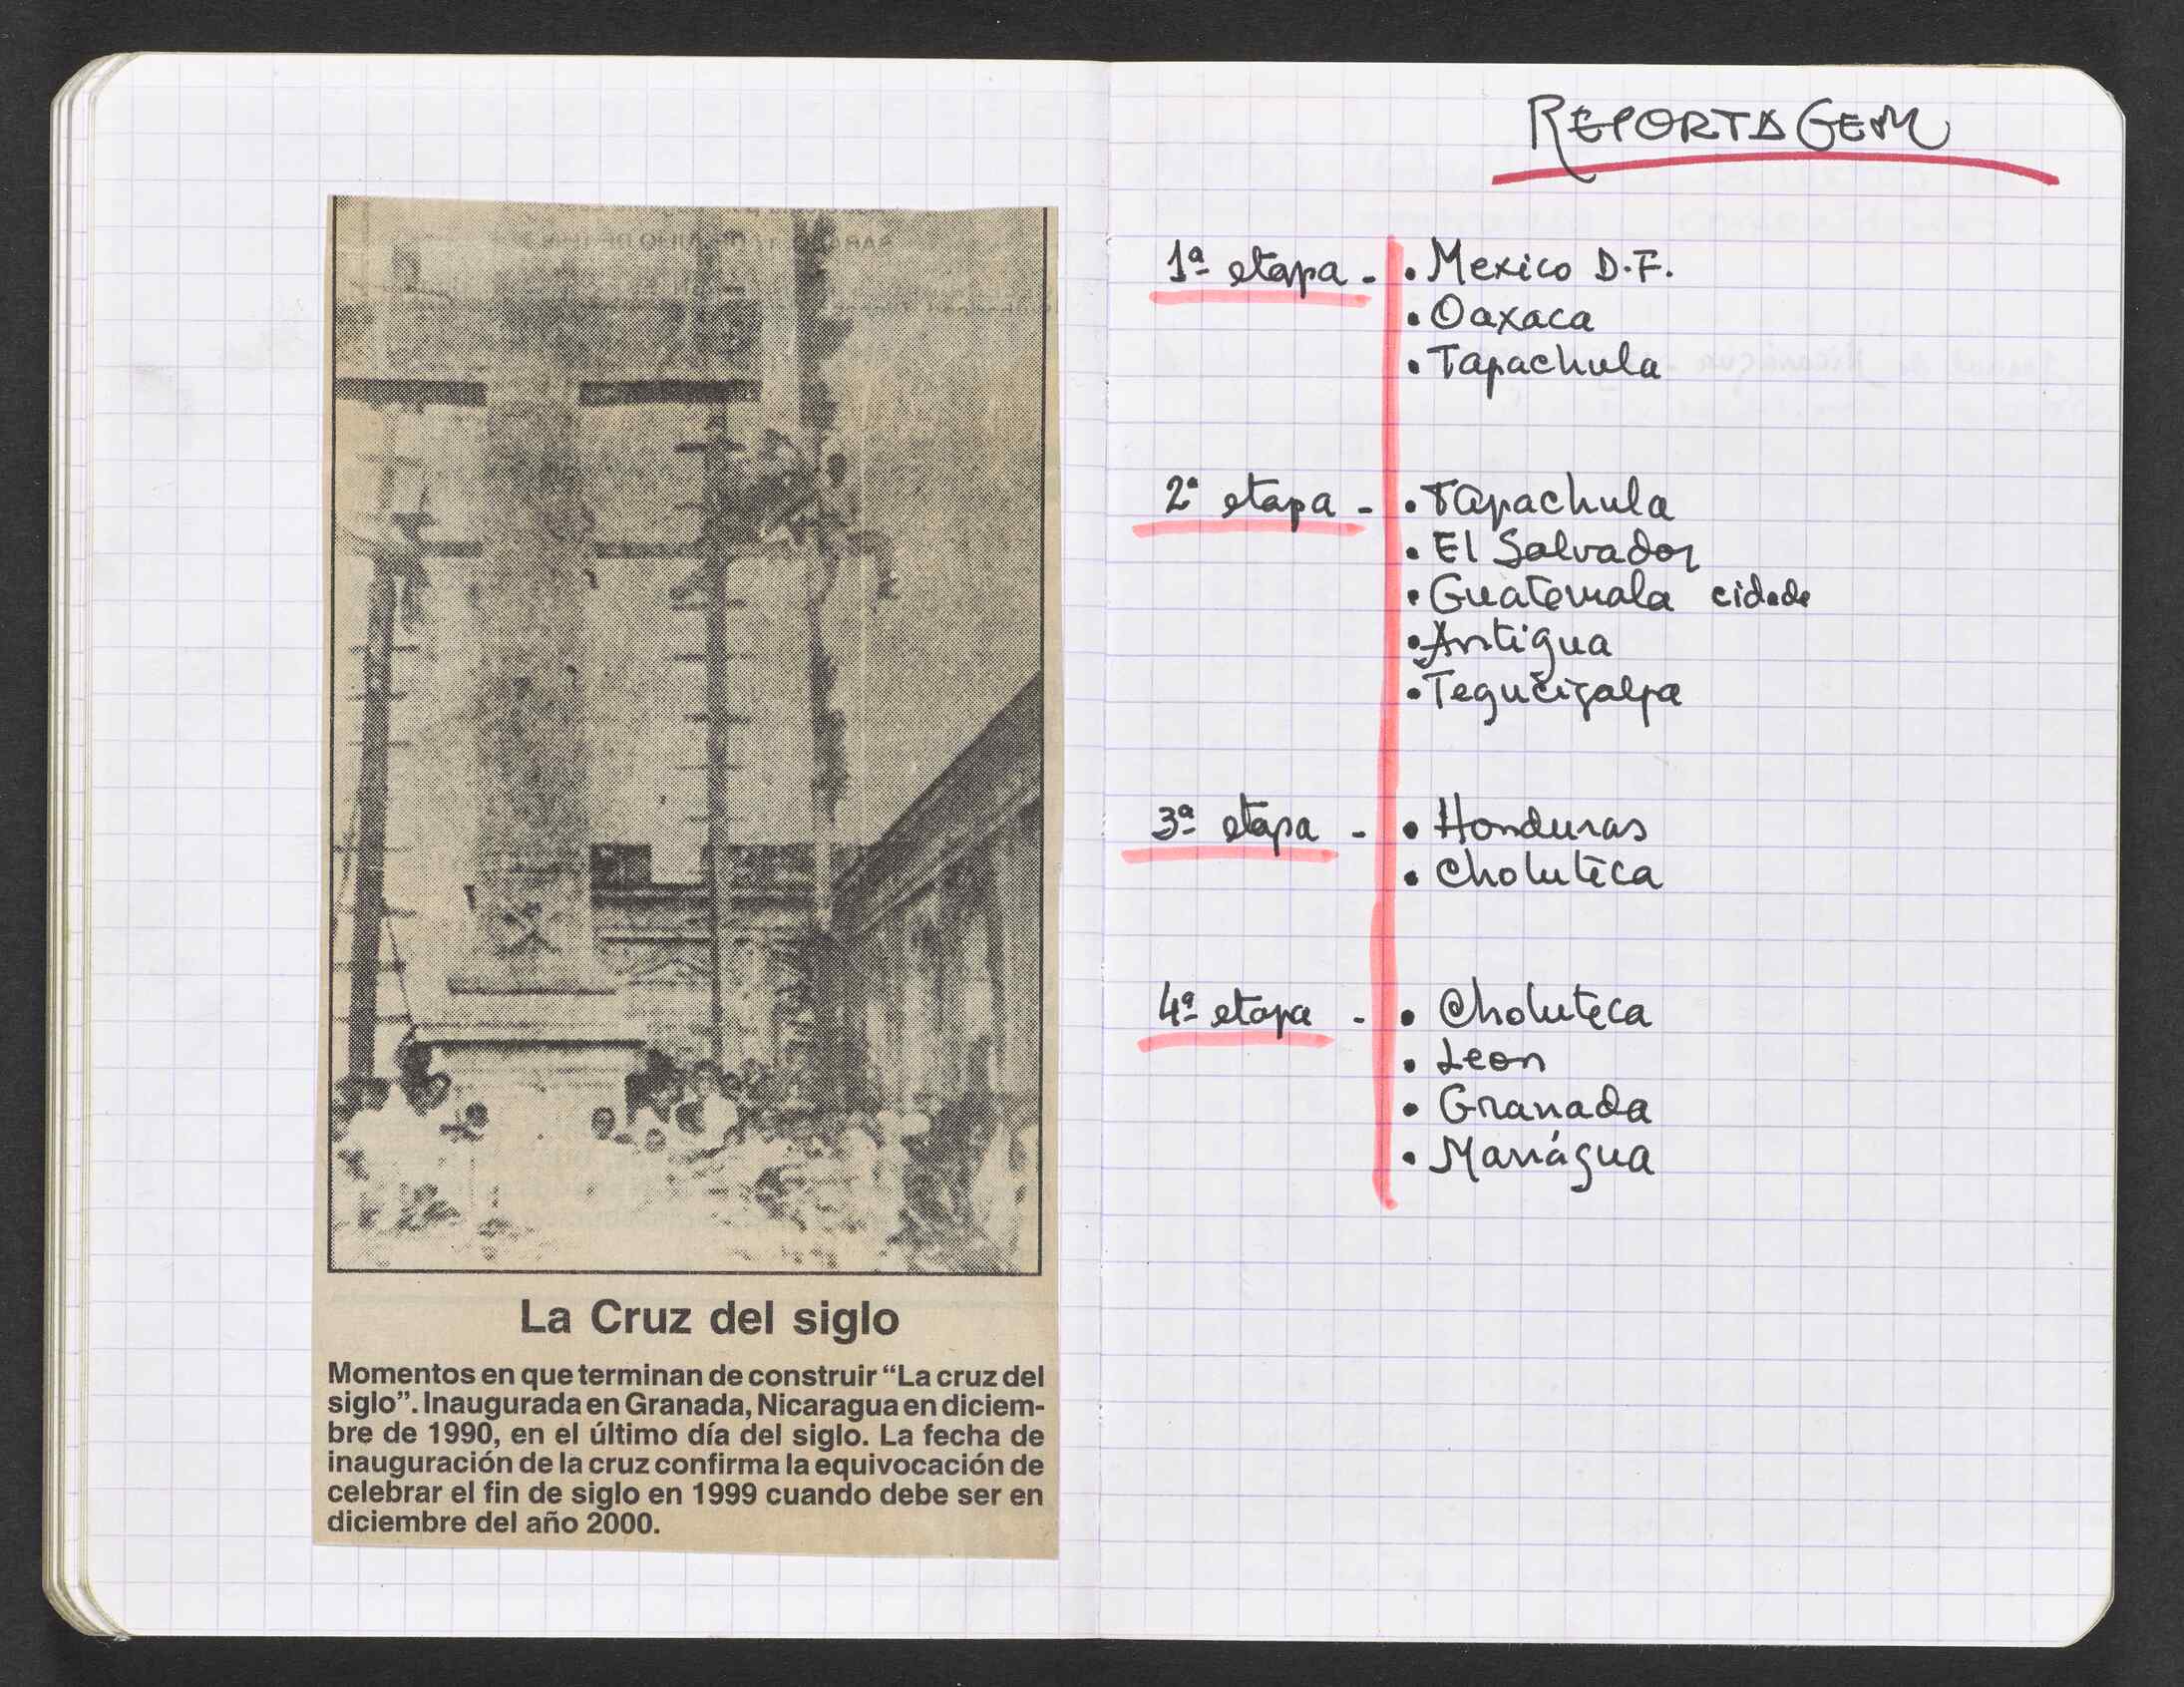 La Cruz del siglo
Momentos en que terminan de construir “La cruz del
siglo”. Inaugurada en Granada, Nicaragua en diciem-
bre de 1990, en el último día del siglo. La fecha de
inauguración de la cruz confirma la equivocación de
celebrar el fin de siglo en 1999 cuando debe ser en
diciembre del año 2000.
REPORTAGEM
1ª etapa - • Mexico D.F.
• Oaxaca
• Tapachula
2ª etapa - • Tapachula
• El Salvador
• Guatemala cidade
• Antigua
• Tegucigalpa
3ª etapa - • Honduras
• Choluteca
4ª etapa - • Choluteca
• Leon
• Granada
• Manágua